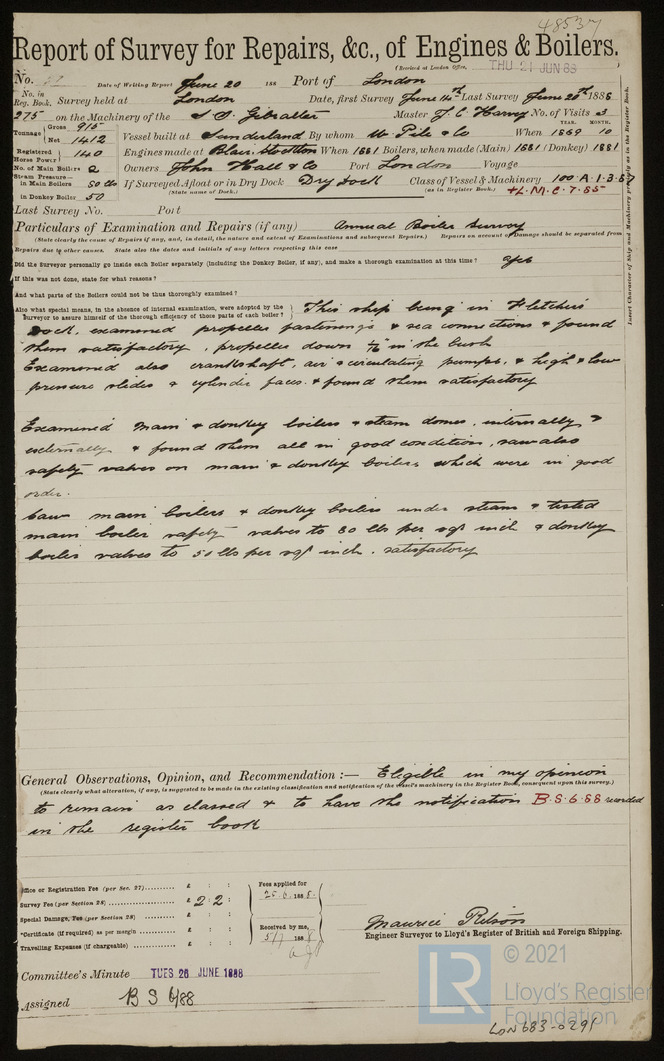 48537
Report of Survey for Repairs, &c., of Engines & Boilers.
(Received at London Office, THU 21 JUN 88
No. Date of Writing Report June 20 188 Port of London
No. in Reg. Book. Survey held at London Date, first Survey June 14th Last Survey June 20th 1888
275 on the Machinery of the S.S. Gibraltar Master No. of Visits 3
Tonnage Gross 915 Net 1412 Vessel built at Sunderland By whom W Pile & Co When YEAR. 1869 MONTH. 10
Registered Horse Power 140 Engines made at Blair Stockton When 1881 Boilers, when made (Main) 1881 (Donkey) 1881
No. of Main Boilers 2 Owners John Hall & Co Port London Voyage
Steam Pressure in Main Boilers 80 lbs If Surveyed Afloat or in Dry Dock Dry dock Class of Vessel & Machinery 100 A.1.3.87
in Donkey Boiler 50 (State name of Dock.) (as in Register Book.) +L.M.C.7.85
Last Survey No. Port
Particulars of Examination and Repairs (if any) Annual Boiler Survey
(State clearly the cause of Repairs if any, and, in detail, the nature and extent of Examinations and subsequent Repairs.) Repairs on account of Damage should be separated from
Repairs due to other causes. State also the dates and initials of any letters respecting this case
Did the Surveyor personally go inside each Boiler separately (including the Donkey Boiler, if any), and make a thorough examination at this time? Yes
If this was not done, state for what reasons?
And what parts of the Boilers could not be thoroughly examined?
Also what special means, in the absence of internal examination, were adopted by the Surveyor to assure himself of the thorough efficiency of those parts of each boiler? This ship being in Fletchers
dock, examined propeller fastenings & sea connections & found
them satisfactory, propeller down in the bush
Examined also crankshaft, air & circulating pumps, & high & low
pressure slides & cylinder faces & found them satisfactory
Examined main & donkey boilers & steam domes, internally &
externally & found them all in good condition, saw also
safety valves on main & donkey boilers which were in good
order.
Saw main boilers & donkey boilers under steam & tested
main boiler safety valves to 80 lbs per sqr inch & donkey
boiler valves to 50 lbs per sqr inch. satisfactory
Insert Character of Ship and Machinery precisely as in the Register Book.
General Observations, Opinion, and Recommendation :— Eligible in my opinion
(State clearly what alteration, if any, is suggested to be made in the existing classification and notification of the vessel's machinery in the Register Book, consequent upon this survey.)
to remain as classed & to have the notification B.S.6.88 recorded
in the register book
Office or Registration Fee (per Sec. 27)......... £ : :
Survey Fee (per Section 28) ........... £ 2 : 2 :
Special Damage, Fee (per Section 28) ........ £ : :
*Certificate (if required) as per margin ........ £ : :
Travelling Expenses (if chargeable) ........... £ : :
Fees applied for
25.6.1888.
Received by me,
5/7 1888
Maurice
Engineer Surveyor to Lloyd's Register of British and Foreign Shipping.
Committee's Minute TUES 26 JUNE 1888
Assigned B S 6/88
LR
© 2021
Lloyd's Register
Foundation
LON 683-0291